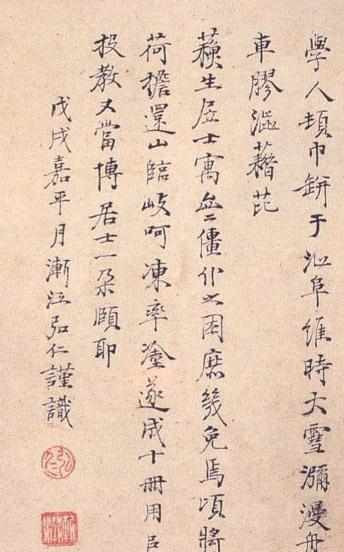 學人頃巾缾于沚阜維時大雪瀰漫舟
車膠澁藉芘
蘋生居士寓僵仆之困庶幾免焉頃將
荷擔還山臨岐呵凍率塗遂成十冊用
投教又當博居士一朵頤耶
戊戌嘉平月漸江弘仁謹識
弘仁